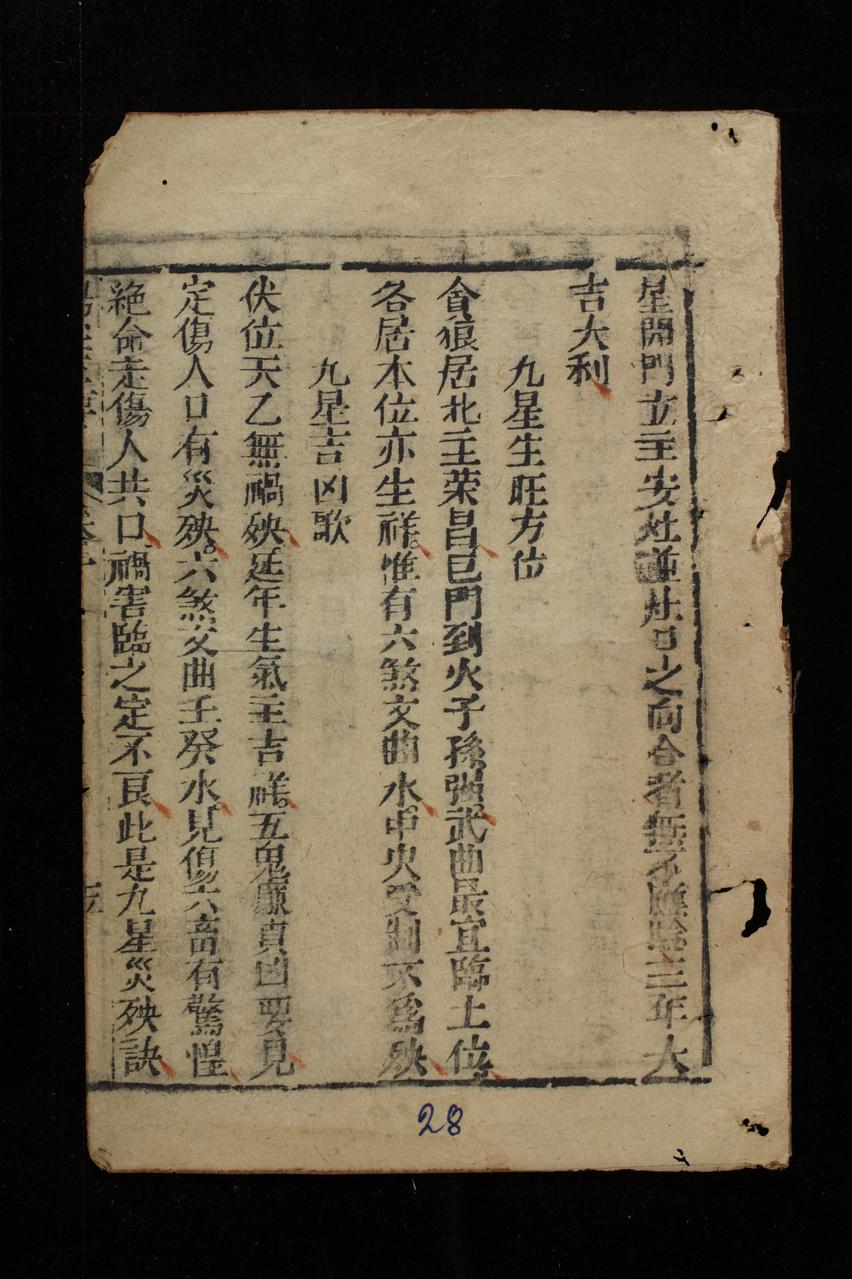 星開門立主安灶謹灶口之向合者無不應驗三年大
吉大利
九星生旺方位
貪狼居北主荣昌巨門到火子孫強武曲最宜臨土位
各居本位亦生祥惟有六煞文曲水中央受制不爲殃
九星吉凶歌
伏位天乙無禍殃延年生氣主吉祥五鬼廉貞凶要見
定傷人口有災殃六煞文曲壬癸水見傷六畜有驚惶
絶命走傷人共口禍害臨之定不良此是九星災殃訣
28